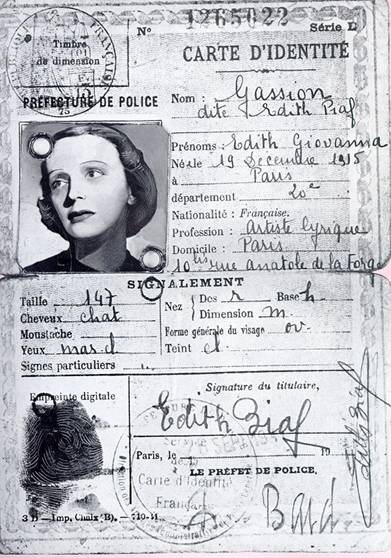 Nº 1265022 Série L
Timbre
de dimension
CARTE D'IDENTITÉ
PRÉFECTURE DE POLICE
Nom : Gassion
dite Edith Piaf
Prénoms : Edith Giovanna
Né le 19 Décembre 1915
à Paris
département 20e
Nationalité : Française.
Profession : Artiste lyrique
Domicile : Paris
10 bis rue Anatole de la Forge
SIGNALEMENT
Taille 147
Cheveux chat
Moustache
Yeux mar.d
Signes particuliers
Nez Dos r Base h
Dimension m
Forme générale du visage ov
Teint cl
Empreinte digitale
Signature du titulaire,
Edith Piaf
Edith Piaf
Paris, le 19
LE PRÉFET DE POLICE,
Service
Carte d'Identité
3 B —Imp. Chaix (B).